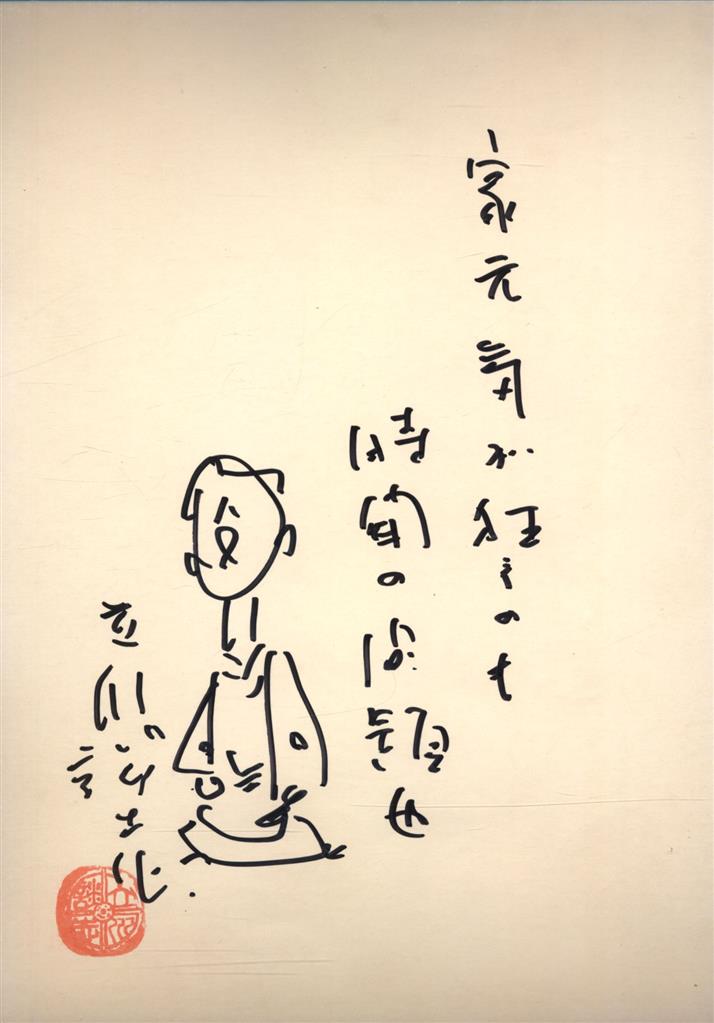 家元気が狂うのも
時間の問題也
立川談志